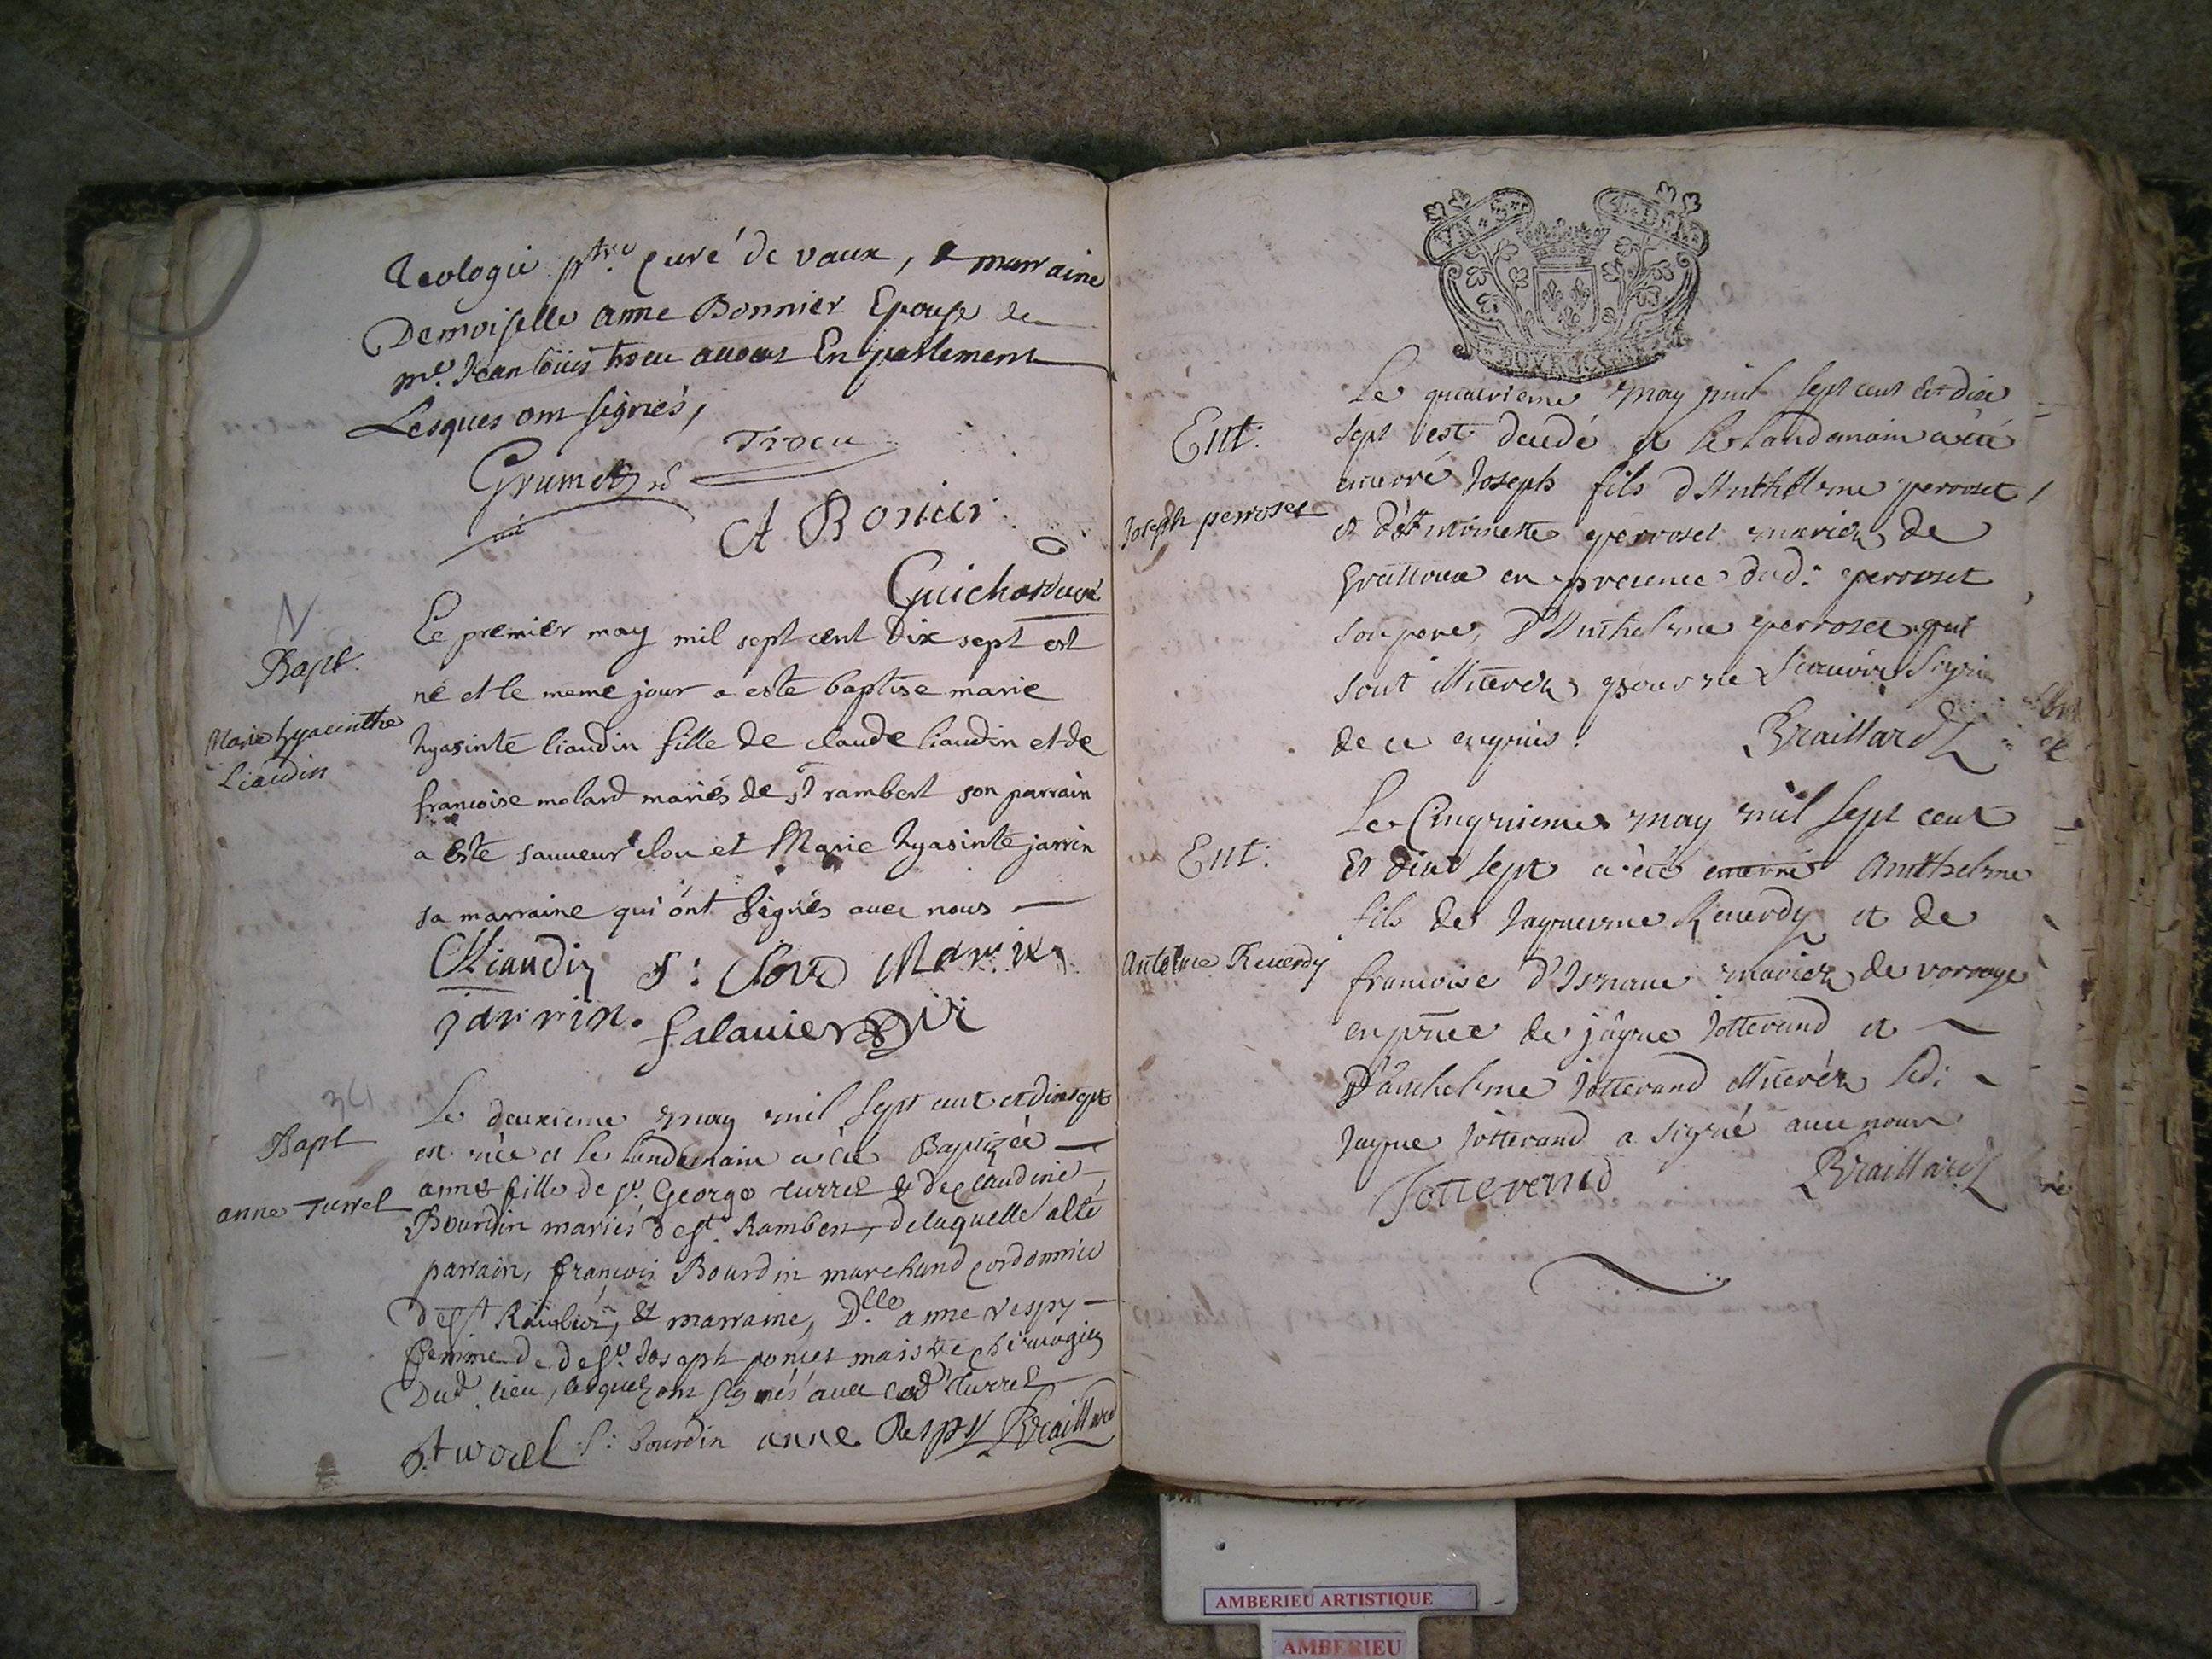 Teologie ptre curé de vaux, & marraine
Demoiselle anne Bonnier Epouse de
me. Jean louis trocu auocat En parlement
Lesques ont signés,
Trocu
Grumet
A Bonier
Guichard curé
N
Bapt.
Marie hyacinthe
Liaudin
Le premier may mil sept cent dix sept est
né et le meme jour a esté baptise marie
hyasinte liaudin fille de claude liaudin et de
francoise molard mariés de st rambert son parrain
a esté sauueur clou et Marie hyasinte jarrin
sa marraine qui ont signés auec nous
CLiaudin S: Clou Marie
jarrin. falauier vic
34
Bapt
anne Turrel
Le deuxieme may mil sept cent et dix sept
est née et le landemain a été Baptizée
anne fille de sr. George turrel & de claudine
Bourdin mariés de st. Rambert, de laquelle a été
parrain, françois Bourdin marchand cordonnier
de st Rambert, & marraine, Dlle. anne respy
femme de sr. Joseph poncet maistre chirurgien
Dud. lieu, lesquels ont signés auec led turrel
turrel f: bourdin anne Respy Braillard
VN
Ent:
Joseph perroset
Le quatrieme may mil sept cent et dix
sept est decedé et le landemain a été
enterré Joseph fils d'Anthelme perroset
et d'Antoinette perroset mariez de
grattoux en presence dud: perroset
son pere, d'Anthelme perroset qui
sont illiterez pour ne scauoir signer
de ce enquis. Braillard
Ent:
Antelme Reuerdy
Le Cinquieme may mil sept cent
et dix sept a été enterré Anthelme
fils de Jaquesme Reuerdy et de
francoise d'Isnaue mariez de vorage
en pnce de jâque Jotterand et
d'anthelme Jotterand illiteréz led:
Jaque Jotterand a signé auec nous
Jotterand Braillard
AMBERIEU ARTISTIQUE
AMBERIEU